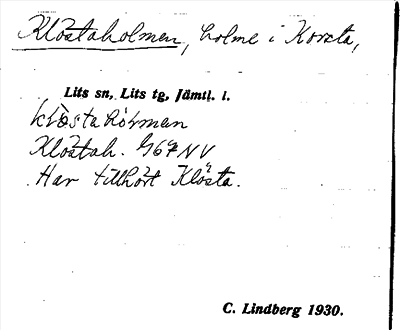 Klöstaholmen, holme i Korsta,
Lits sn, Lits tg, Jämtl. l.
Klöstah. 67 NV
Har tillhört Klösta.
C. Lindberg 1930.